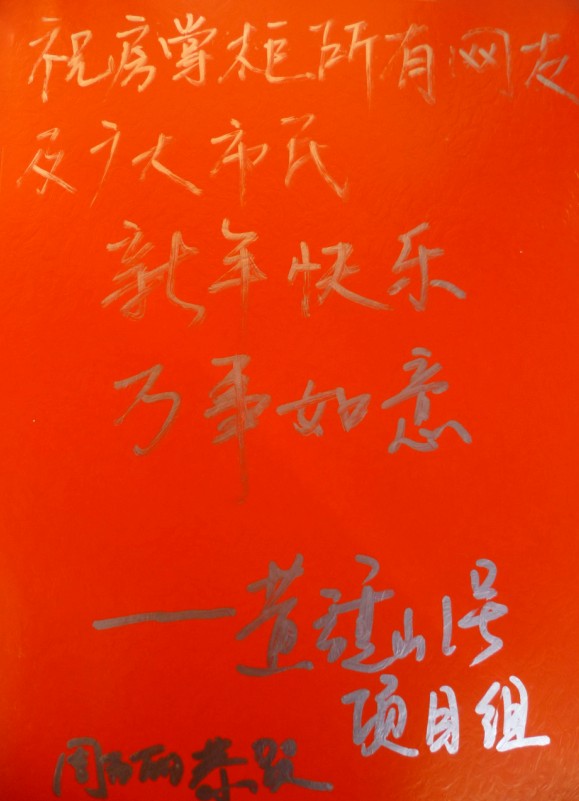 祝房掌柜所有网友
及广大市民
新年快乐
万事如意
——黄旗山1号
项目组
周丽恭贺